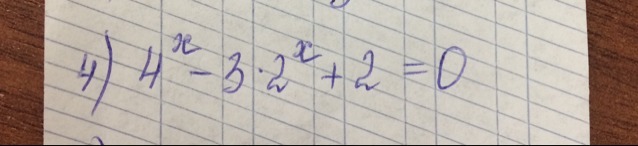 4) 4^x - 3·2^x + 2 = 0